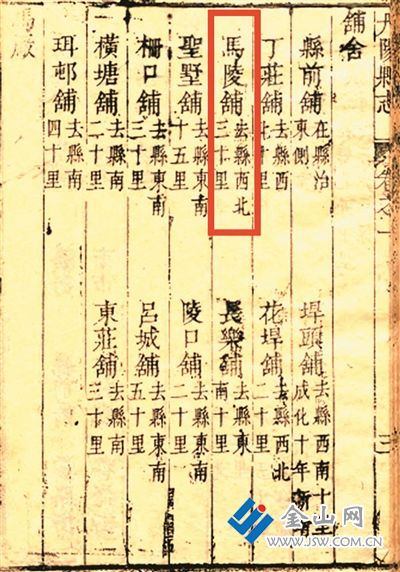 丹陽縣志 卷之一 三
舖舍
縣前舖 在縣治東側 埤頭舖 去縣西南十里成化十年新增
丁莊舖 去縣西十里 花埤舖 去縣西北二十里
馬陵舖 去縣西北三十里 長樂舖 去縣東南十里
聖墅舖 去縣東南十五里 陵口舖 去縣東南二十里
柵口舖 去縣東南三十里 呂城舖 去縣東南五十里
橫塘舖 去縣南二十里 東莊舖 去縣南三十里
珥邨舖 去縣南四十里
金山网
WWW.JSW.COM.CN